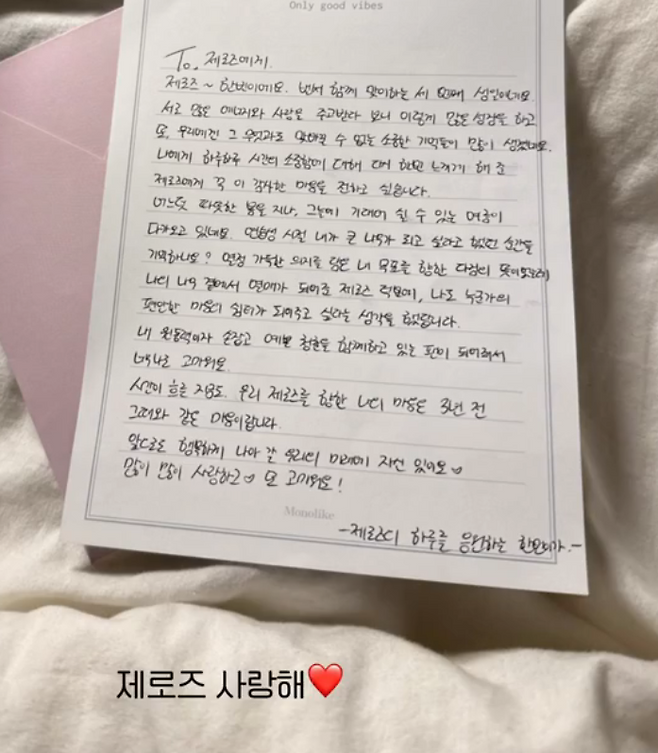 Only good vibes
To. 제로즈에게.
제로즈~ 한빈이에요. 벌써 함께 맞이하는 세 번째 생일이네요.
서로 많은 에너지와 사랑을 주고받다 보니 이렇게 많은 성장을 하고
또, 우리에겐 그 무엇과도 맞바꿀 수 없는 소중한 기억들이 많이 생겼네요.
나에게 하루하루 시간의 소중함에 대해 다시 한번 느끼게 해 준
제로즈에게 꼭 이 감사한 마음을 전하고 싶습니다.
어느덧 따뜻한 봄을 지나, 그늘에 기대어 쉴 수 있는 여름이
다가오고 있네요. 연습생 시절 내가 큰 나무가 되고 싶다고 했던 순간을
기억하나요? 열정 가득한 의지를 담은 내 목표를 향한 다짐의 뜻이었는데
나의 나무 곁에서 열매가 되어준 제로즈 덕분에, 나도 누군가의
편안한 마음의 쉼터가 되어주고 싶다는 생각을 했답니다.
내 원동력이자 손잡고 예쁜 청춘을 함께하고 있는 편이 되어줘서
너무나도 고마워요.
시간이 흐른 지금도, 우리 제로즈를 향한 나의 마음은 3년 전
그때와 같은 마음이랍니다.
앞으로도 행복하게 나아 갈 우리의 미래에 자신 있어요♡
많이 많이 사랑하고♡ 또 고마워요!
Monolike
-제로즈의 하루를 응원하는 한빈이가.-
제로즈 사랑해❤️